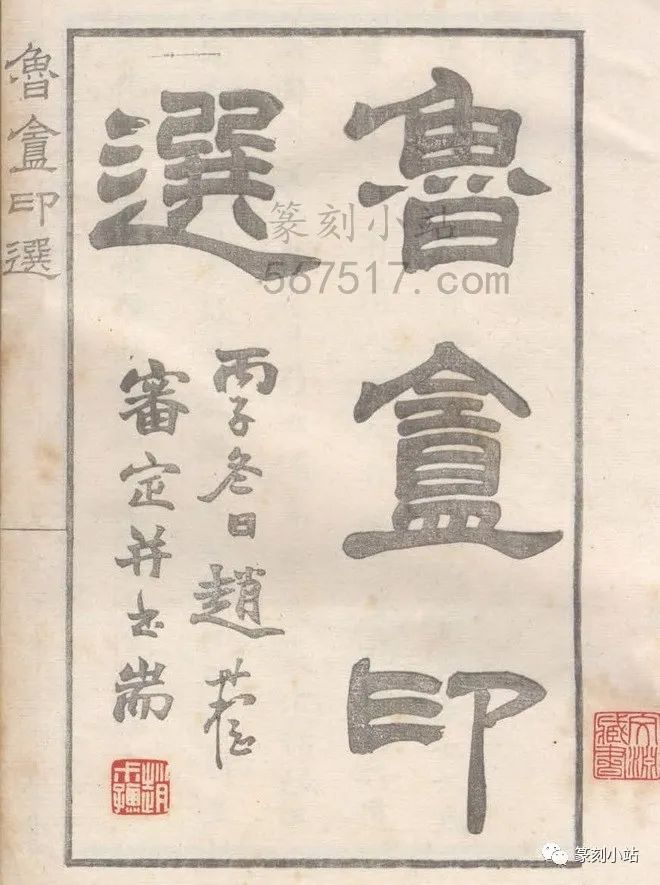 魯盦印
選
丙子冬日趙
審定并書耑
趙叔孺
魯盦印選
篆刻小站
567517.com
篆刻小站